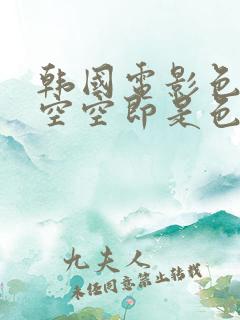 韩国电影色
空空即是色
九夫人
未经同意禁止转载